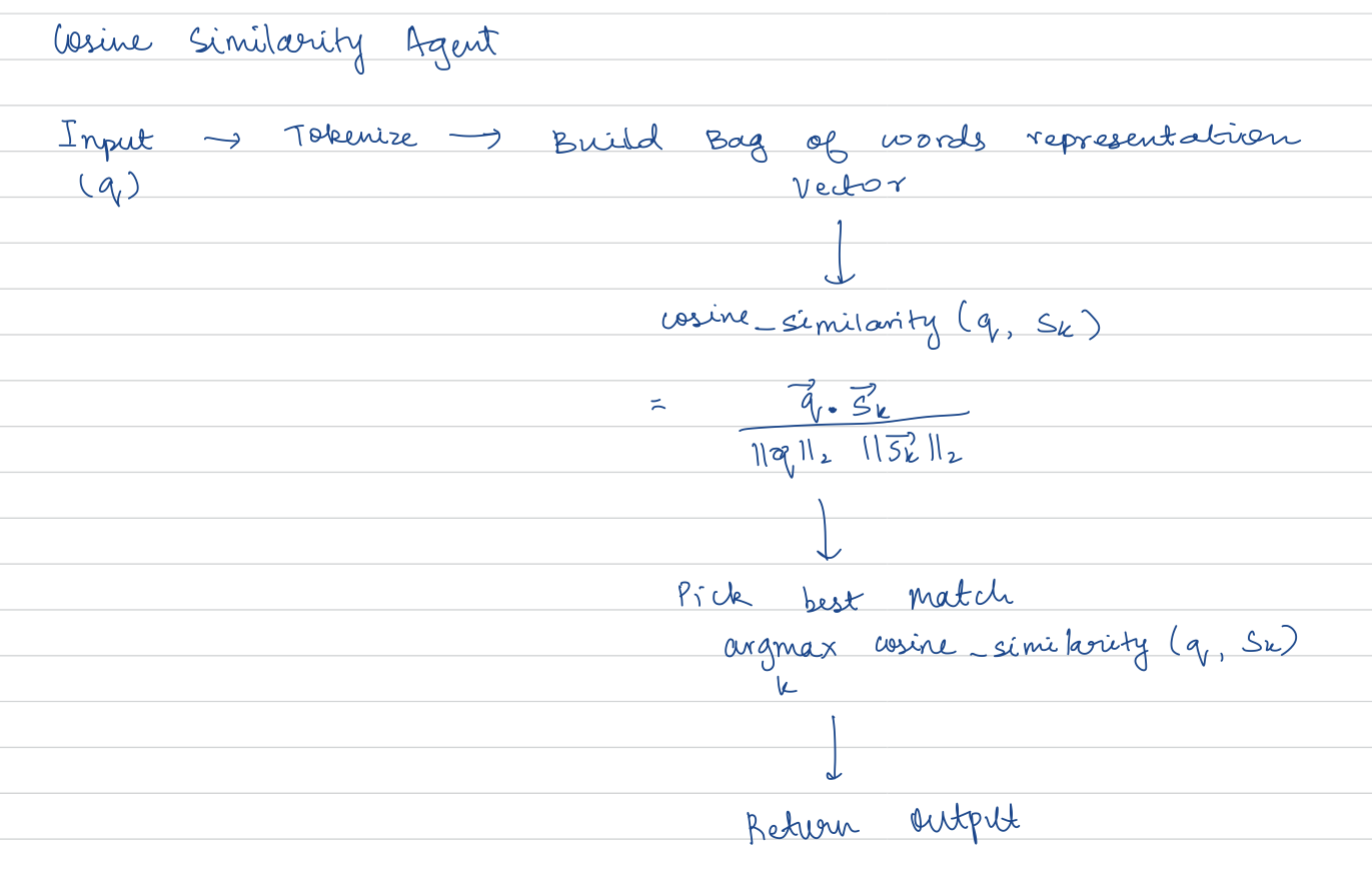 Cosine Similarity Agent
Input → Tokenize → Build Bag of words representation
(q) Vector
↓
cosine_similarity (q, Sk)
= q⃗ · S⃗k / ||q||₂ ||S⃗k||₂
↓
Pick best match
argmax cosine_similarity (q, Sk)
k
↓
Return output